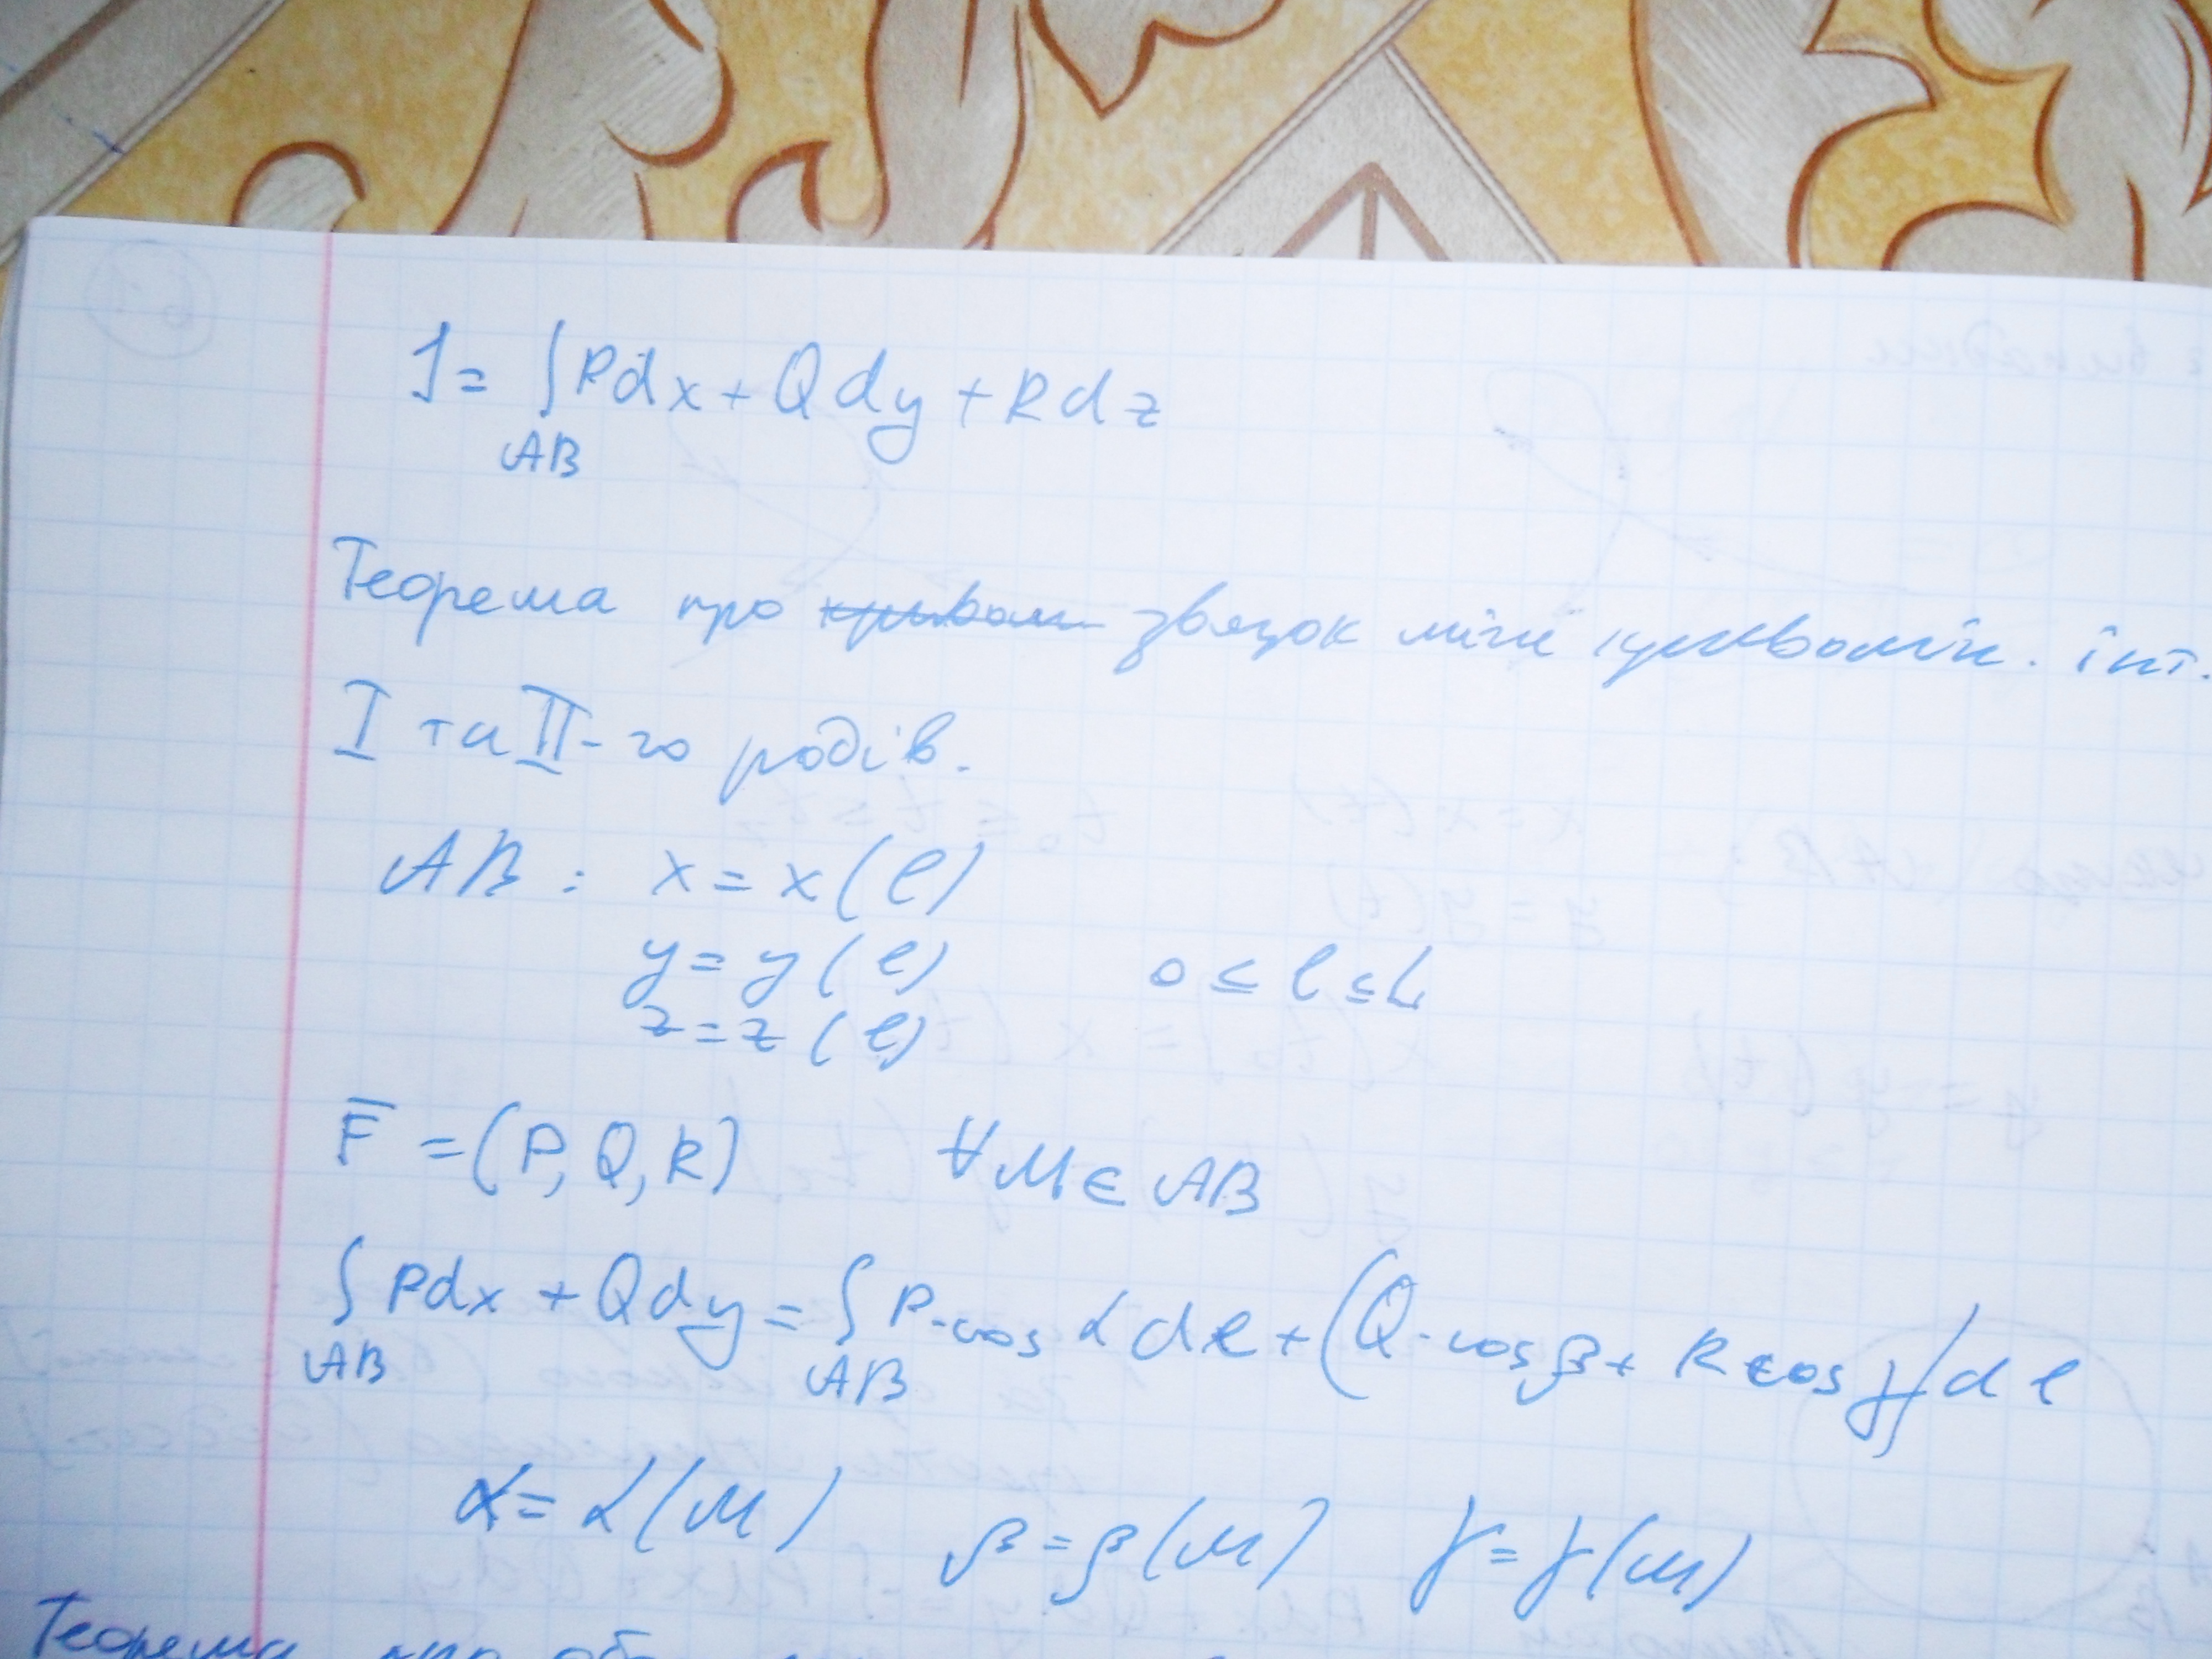 J = ∫ Pdx + Qdy + Rdz
AB
Теорема про кривол звязок між криволін. інт.
I та II-го родів.
AB : x = x(l)
y = y(l) 0 ≤ l ≤ L
z = z(l)
F̅ = (P, Q, R) ∀M ∈ AB
∫ Pdx + Qdy = ∫ P·cos α dl + (Q·cos β + R cos γ) dl
AB AB
α = α(M) β = β(M) γ = γ(M)
Теорема про об